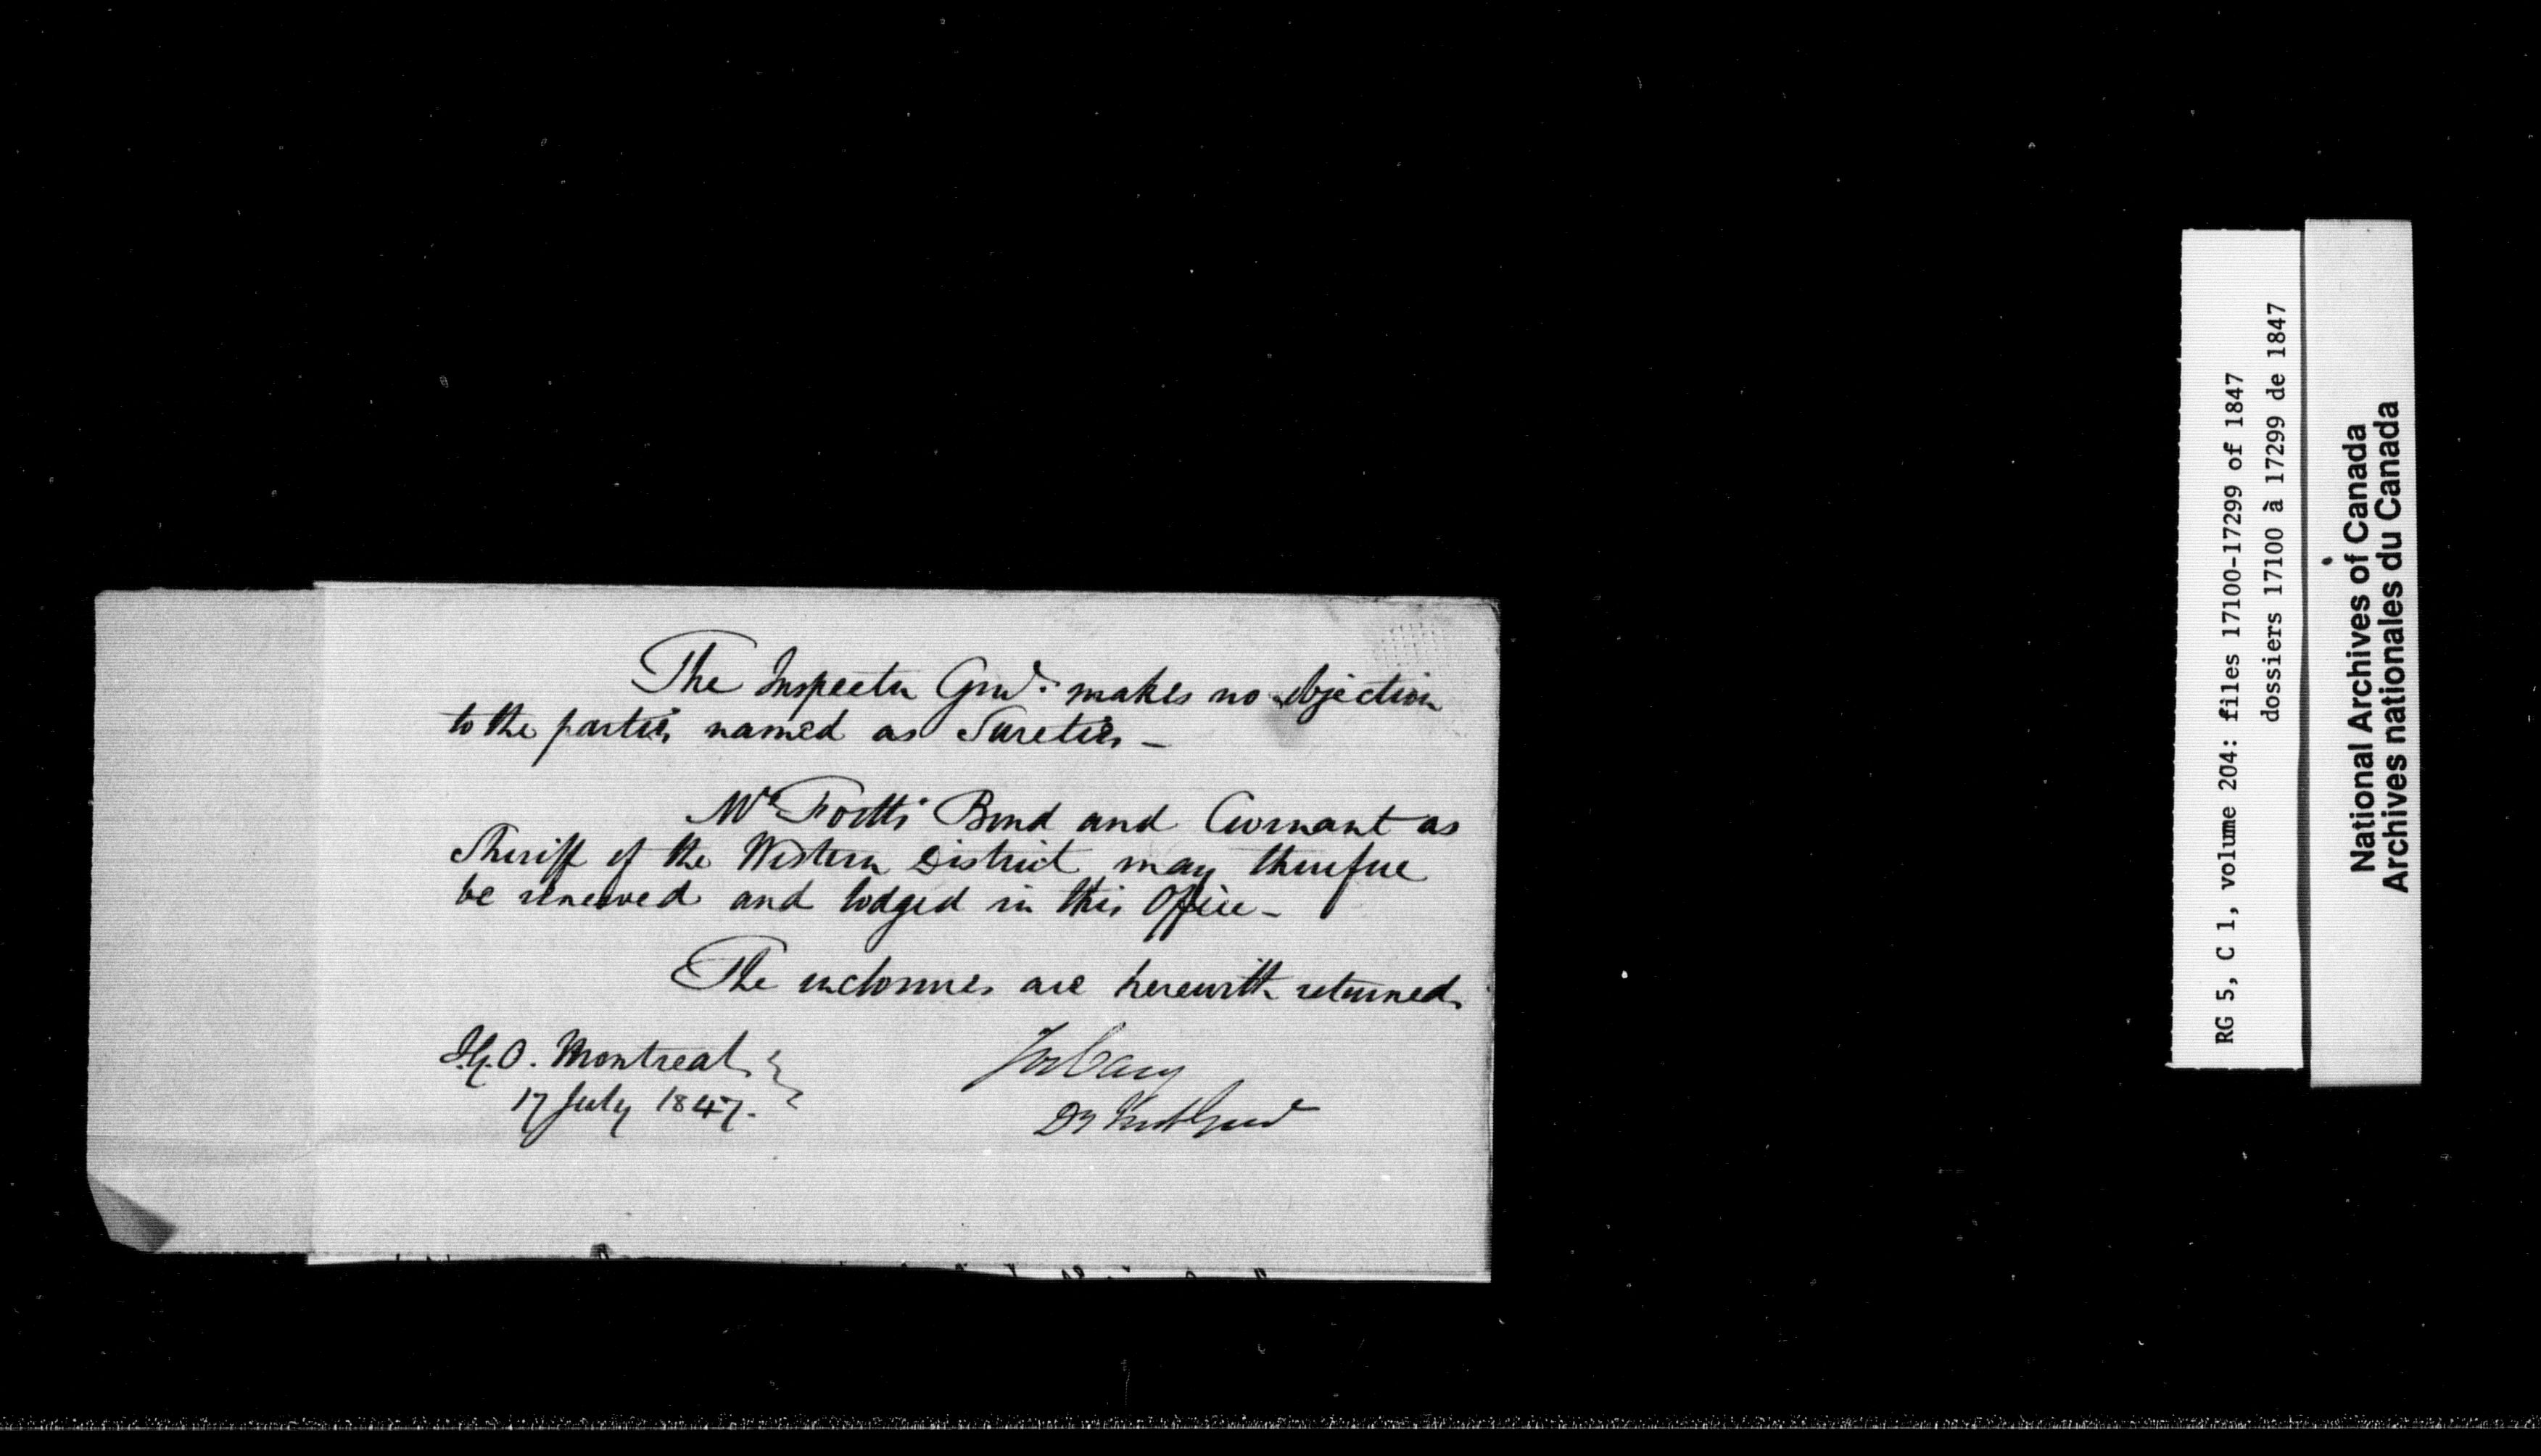 The Inspector Genl. makes no objection
to the parties named as Sureties -
Mr Foott's Bond and Covenant as
Sheriff of the Western District may therefore
be renewed and lodged in this Office -
The inclosures are herewith returned
I.G.O. Montreal
17 July 1847.
Jos Cary
Dy Inst Genl
RG 5, C 1, volume 204: files 17100-17299 of 1847
dossiers 17100 à 17299 de 1847
National Archives of Canada
Archives nationales du Canada